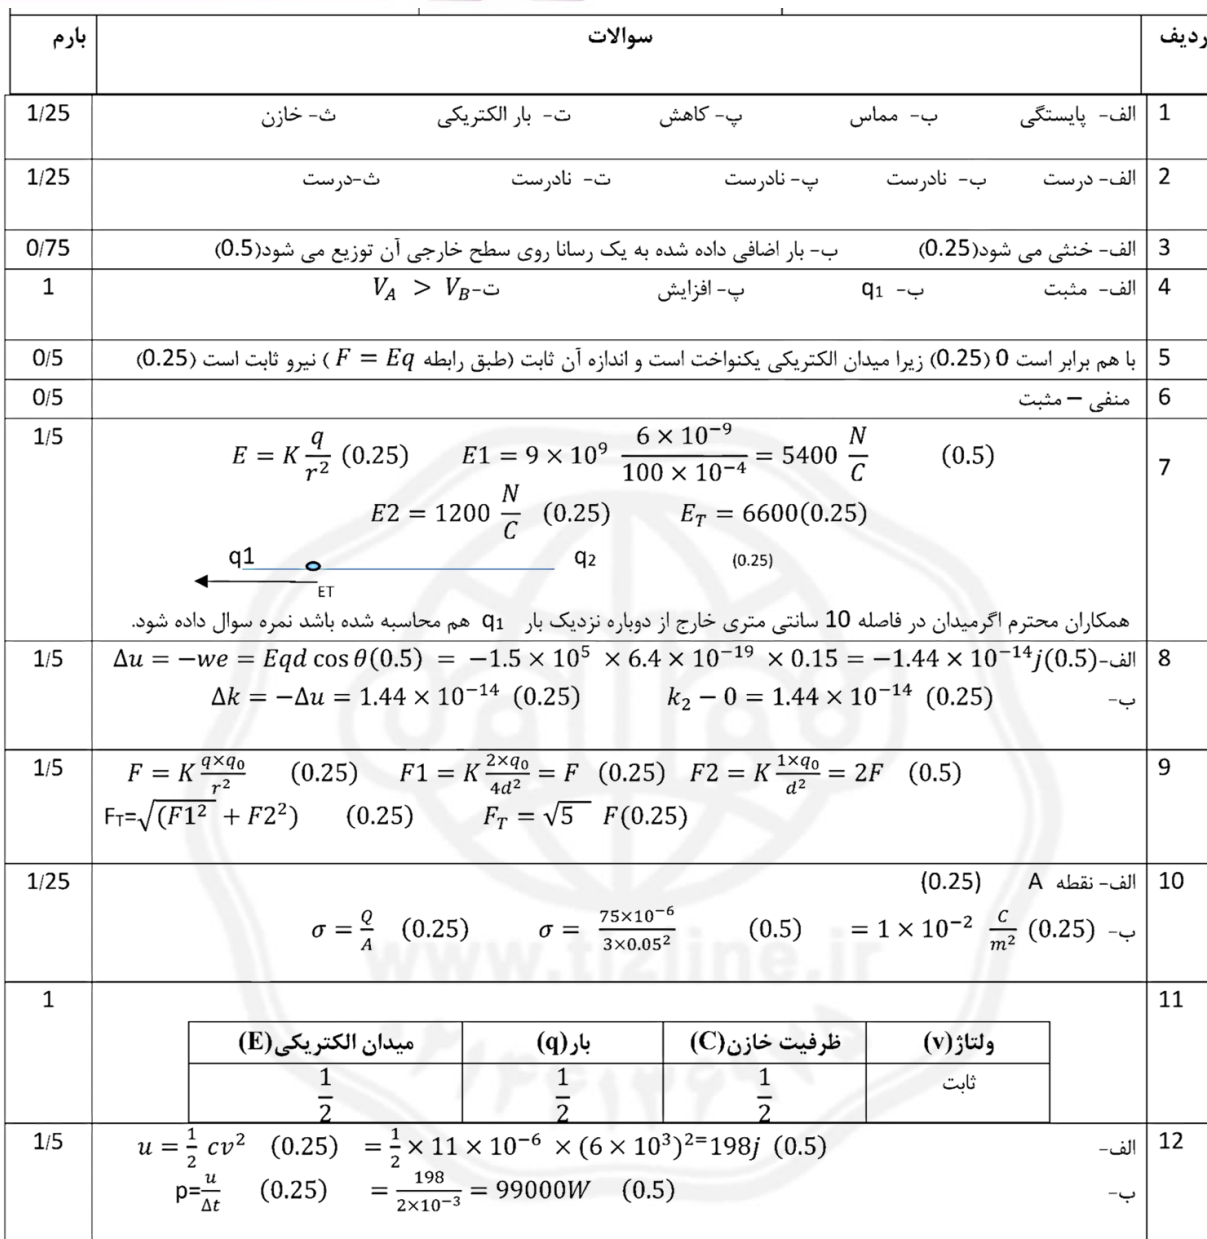 ردیف سوالات بارم
1 الف- پایستگی ب- مماس پ- کاهش ت- بار الکتریکی ث- خازن 1/25
2 الف- درست ب- نادرست پ- نادرست ت- نادرست ث-درست 1/25
3 الف- خنثی می شود(0.25) ب- بار اضافی داده شده به یک رسانا روی سطح خارجی آن توزیع می شود(0.5) 0/75
4 الف- مثبت ب- q1 پ- افزایش ت- V_A > V_B 1
5 با هم برابر است 0 (0.25) زیرا میدان الکتریکی یکنواخت است و اندازه آن ثابت (طبق رابطه F = Eq ) نیرو ثابت است (0.25) 0/5
6 منفی – مثبت 0/5
7 E = K q/r² (0.25) E1 = 9 × 10⁹ (6 × 10⁻⁹)/(100 × 10⁻⁴) = 5400 N/C (0.5) 1/5
E2 = 1200 N/C (0.25) E_T = 6600(0.25)
q1 q2 (0.25)
ET
همکاران محترم اگرمیدان در فاصله 10 سانتی متری خارج از دوباره نزدیک بار q1 هم محاسبه شده باشد نمره سوال داده شود.
8 الف- Δu = −we = Eqd cos θ(0.5) = −1.5 × 10⁵ × 6.4 × 10⁻¹⁹ × 0.15 = −1.44 × 10⁻¹⁴j(0.5) 1/5
ب- Δk = −Δu = 1.44 × 10⁻¹⁴ (0.25) k₂ − 0 = 1.44 × 10⁻¹⁴ (0.25)
9 F = K (q×q₀)/r² (0.25) F1 = K (2×q₀)/4d² = F (0.25) F2 = K (1×q₀)/d² = 2F (0.5) 1/5
F_T=√(F1² + F2²) (0.25) F_T = √5 F(0.25)
10 الف- نقطه A (0.25) 1/25
ب- σ = Q/A (0.25) σ = (75×10⁻⁶)/(3×0.05²) (0.5) = 1 × 10⁻² C/m² (0.25)
www.tizline.ir
11 1
ولتاژ(v) ظرفیت خازن(C) بار(q) میدان الکتریکی(E)
ثابت 1/2 1/2 1/2
12 الف- u = 1/2 cv² (0.25) = 1/2 × 11 × 10⁻⁶ × (6 × 10³)²⁼198j (0.5) 1/5
ب- p=u/Δt (0.25) = 198/(2×10⁻³) = 99000W (0.5)